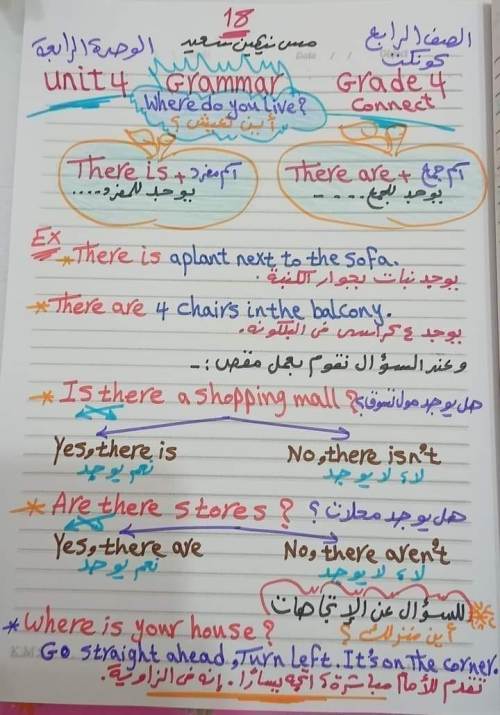 18
الصف الرابع مس نيفين سعيد الوحدة الرابعة
كونكت
Unit 4 Grammar Grade 4
Connect
Where do you live?
أين تعيش؟
There is + اسم مفرد There are + اسم جمع
يوجد للمفرد.... يوجد للجمع....
Ex
There is a plant next to the sofa.
يوجد نبات بجوار الكنبة.
There are 4 chairs in the balcony.
يوجد ٤ كراسى فى البلكونه.
وعند السؤال نقوم بعمل مقص :-
Is there a shopping mall? هل يوجد مول تسوق؟
Yes, there is No, there isn't
نعم يوجد لاء لا يوجد
Are there stores? هل يوجد محلات؟
Yes, there are No, there aren't
نعم يوجد لاء لا يوجد
للسؤال عن الإتجاهات
Where is your house? أين منزلك؟
Go straight ahead, Turn Left. It's on The corner.
تقدم للأمام مباشرة، اتجه يسارًا. إنه فى الزاوية.